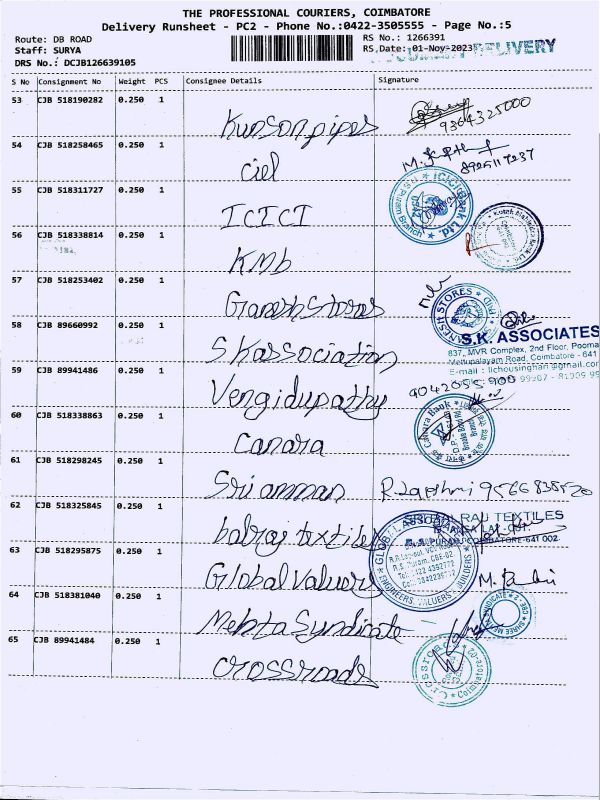 THE PROFESSIONAL COURIERS, COIMBATORE
Delivery Runsheet - PC2 - Phone No.:0422-3505555 - Page No.:5
Route: DB ROAD
RS No.: 1266391
Staff: SURYA
RS,Date: 01-Nov-2023
DELIVERY
DRS No.: DCJB126639105
S No Consignment No Weight PCS Consignee Details Signature
53 CJB 518190282 0.250 1
Kunsonpipes
9364325000
54 CJB 518258465 0.250 1
ciel
8925117237
55 CJB 518311727 0.250 1
ICICI
ICICI Bank Ltd.
56 CJB 518338814 0.250 1
KMb
57 CJB 518253402 0.250 1
Ganesh Stores
GANESH STORES
58 CJB 89660992 0.250 1
S.K. ASSOCIATES
837, MVR Complex, 2nd Floor, Pooma
Mettupalayam Road, Coimbatore - 641
E-mail : lichousinghari@gmail.com
S.K association
59 CJB 89941486 0.250 1
Vengidupathy
9042055 900
60 CJB 518338863 0.250 1
Canara
Canara Bank
61 CJB 518298245 0.250 1
Sri amman
9566838520
62 CJB 518325845 0.250 1
balraj textiles
TEXTILES
COIMBATORE-641 002
63 CJB 518295875 0.250 1
Global Valuers
GLOBAL ASSOCIATES
ENGINEERS, VALUERS
64 CJB 518381040 0.250 1
Mehta Syndicate
65 CJB 89941484 0.250 1
Crossroads
Coimbatore-02